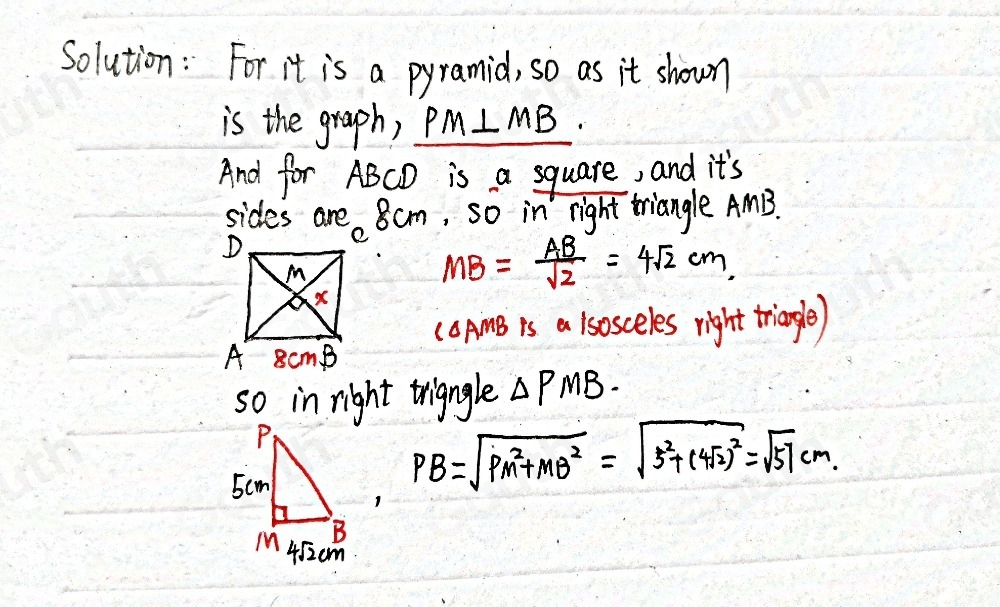 Solution: For it is a pyramid, so as it shown
is the graph, PM⊥MB.
And for ABCD is a square, and it's
sides are 8cm, so in right triangle AMB.
D C
M
x
A 8cm B
MB = AB/√2 = 4√2 cm.
(△AMB is a isosceles right triangle)
so in right trigngle △PMB.
P
5cm
M 4√2cm B
, PB=√(PM²+MB²) = √(5²+(4√2)²) = √57 cm.